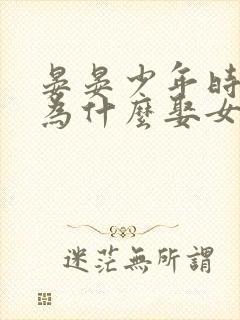 晏晏少年時
為什麼娶女
迷茫無所謂